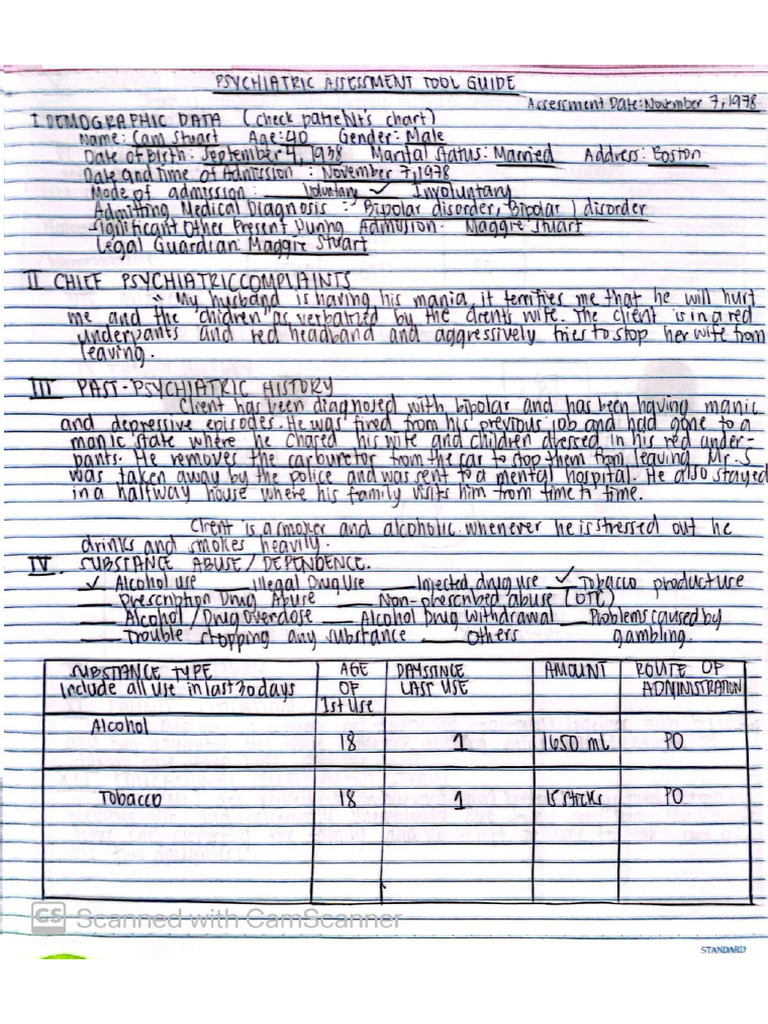 PSYCHIATRIC ASSESSMENT TOOL GUIDE
Assessment Date: November 7, 1978
I DEMOGRAPHIC DATA (check patient's chart)
Name: Cam Stuart Age: 40 Gender: Male
Date of Birth: September 4, 1938 Marital Status: Married Address: Boston
Date and Time of Admission: November 7, 1978
Mode of admission: Voluntary ✓ Involuntary
Admitting Medical Diagnosis: Bipolar disorder, Bipolar 1 disorder
Significant Other Present During Admission: Maggie Stuart
Legal Guardian: Maggie Stuart
II CHIEF PSYCHIATRIC COMPLAINTS
"My husband is having his mania, it terrifies me that he will hurt
me and the children" as verbatized by the client's wife. The client is in a red
underpants and red headband and aggressively tries to stop her wife from
leaving.
III PAST-PSYCHIATRIC HISTORY
Client has been diagnosed with bipolar and has been having manic
and depressive episodes. He was fired from his previous job and had gone to a
manic state where he chased his wife and children dressed in his red under-
pants. He removes the carburetor from the car to stop them from leaving. Mr. S
was taken away by the police and was sent to a mental hospital. He also stayed
in a halfway house where his family visits him from time to time.
Client is a smoker and alcoholic. whenever he is stressed out he
drinks and smokes heavily.
IV. SUBSTANCE ABUSE / DEPENDENCE.
✓ Alcohol use ___ Illegal Drug Use ___ Injected drug use ✓ Tobacco product use
___ Prescription Drug Abuse ___ Non-prescribed abuse (OTC)
___ Alcohol / Drug Overdose ___ Alcohol Drug Withdrawal ___ Problems caused by
___ Trouble stopping any substance ___ Others gambling.
SUBSTANCE TYPE AGE DAYS SINCE AMOUNT ROUTE OF
Include all use in last 30 days OF LAST USE ADMINISTRATION
1st Use
Alcohol
18 1 1650 ml PO
Tobacco 18 1 15 sticks PO
CS Scanned with CamScanner
STANDARD